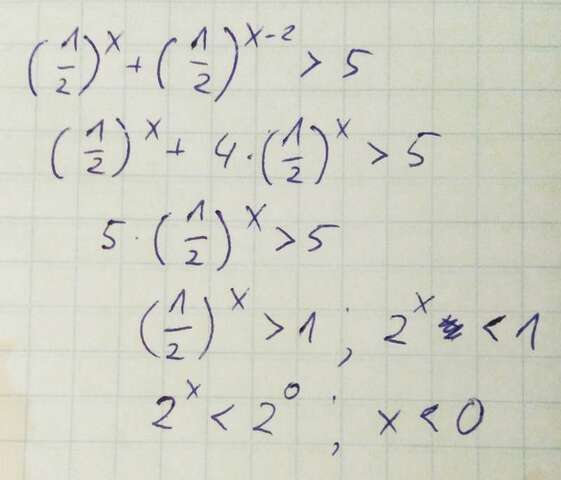 (1/2)^x + (1/2)^(x-2) > 5
(1/2)^x + 4 · (1/2)^x > 5
5 · (1/2)^x > 5
(1/2)^x > 1 ; 2^x < 1
2^x < 2^0 ; x < 0